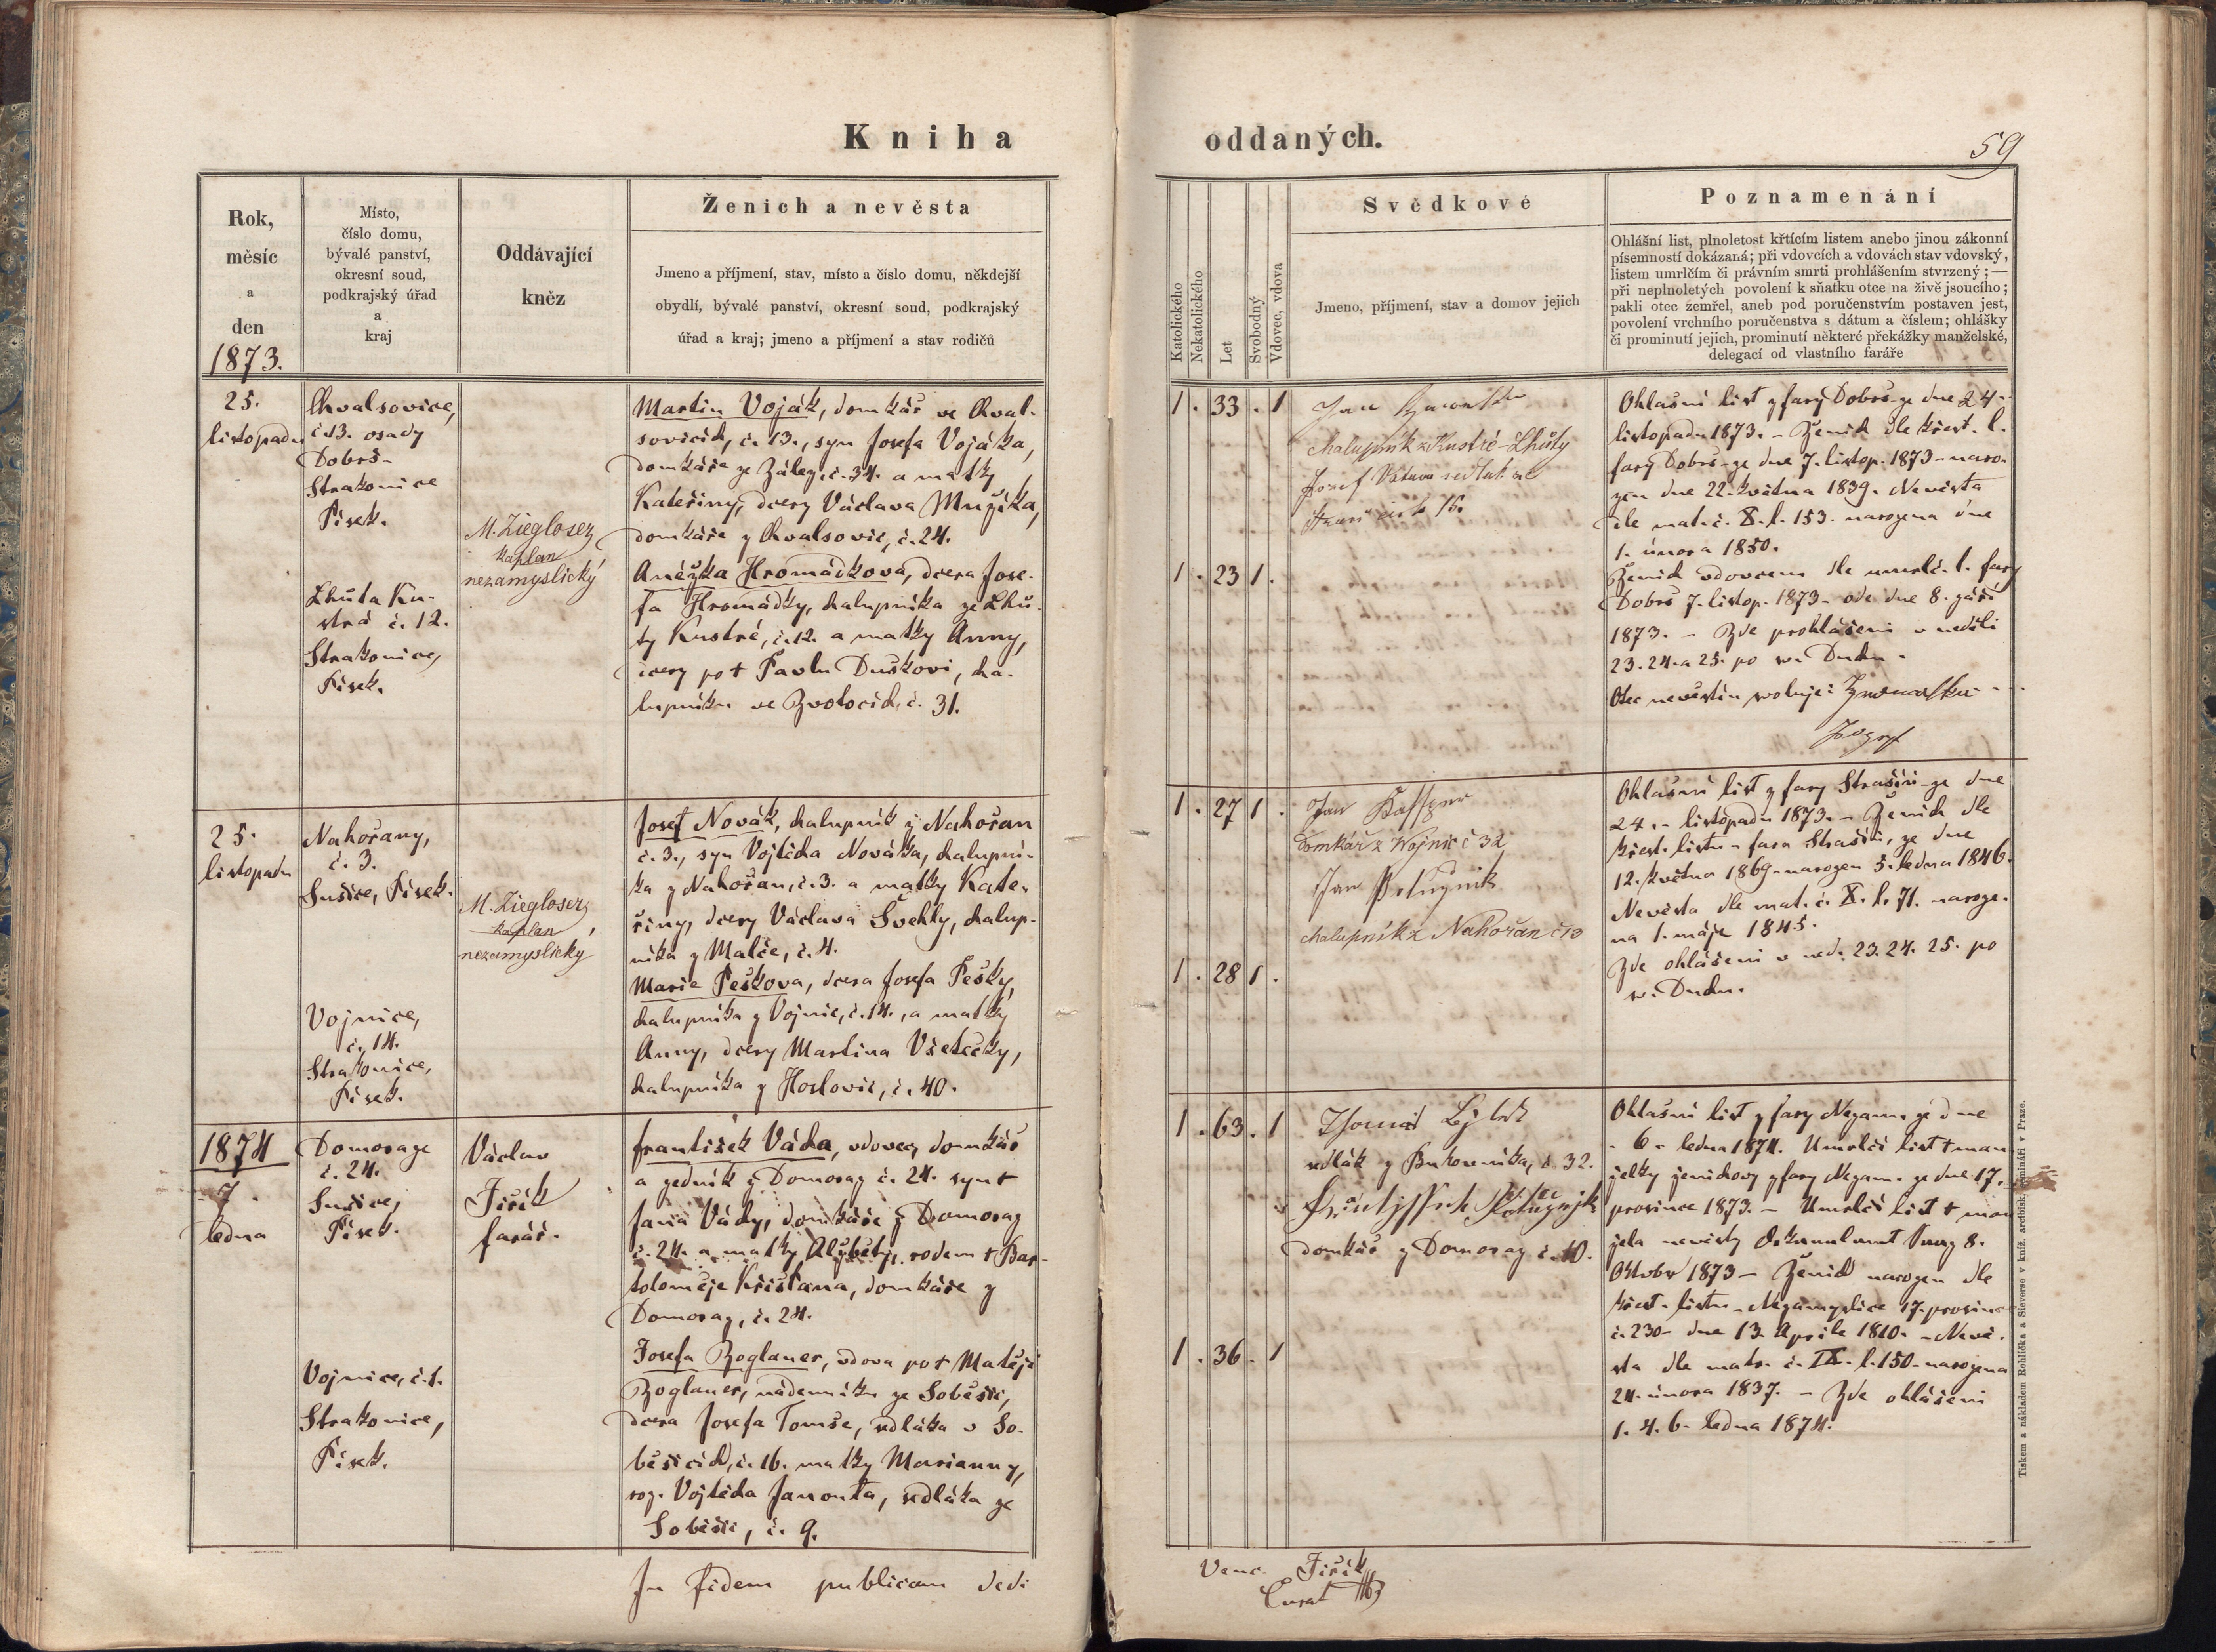 Kniha
oddaných.
59
Rok,
měsíc
a
den
1873.
Místo,
číslo domu,
bývalé panství,
okresní soud,
podkrajský úřad
a
kraj
Oddávající
kněz
Ženich a nevěsta
Jmeno a příjmení, stav, místo a číslo domu, někdejší
obydlí, bývalé panství, okresní soud, podkrajský
úřad a kraj; jmeno a příjmení a stav rodičů
Katolického
Nekatolického
Let
Svobodný
Vdovec, vdova
Svědkové
Jmeno, příjmení, stav a domov jejich
Poznamenání
Ohlášní list, plnoletost křtícím listem anebo jinou zákonní
písemností dokázaná; při vdovcích a vdovách stav vdovský,
listem umrlčím či právním smrti prohlášením stvrzený; —
při neplnoletých povolení k sňatku otce na živě jsoucího;
pakli otec zemřel, aneb pod poručenstvím postaven jest,
povolení vrchního poručenstva s dátum a číslem; ohlášky
či prominutí jejich, prominutí některé překážky manželské,
delegací od vlastního faráře
25.
listopadu
Chvalsovice,
č. 13. osady
Dobrš-
Strakonice
Písek.
Lhůta Ku-
strá č. 12.
Strakonice,
Písek.
M. Ziegloser,
kaplan
nezamyslický
Martin Voják, domkář ve Chval-
sovicích, č. 13., syn Josefa Vojáka,
domkáře ze Zález, č. 34. a matky
Kateřiny, dcery Václava Mužíka,
domkáře z Chvalsovic, č. 24.
Anéžka Hromádkova, dcera Jose-
fa Hromádky, chalupníka ze Lhů-
ty Kustré, č. 12. a matky Anny,
dcery po † Pavlu Duškovi, cha-
lupníku ve Zvotocích, č. 31.
1 . 33 . 1
1 . 23 1 .
Jan
chalupník z Kustré-Lhůty
Josef Vátava sedlák ze
16.
Ohlašní list z fary Dobrš-ze dne 24-
listopadu 1873. - Ženich dle křest. l.
fary Dobrš-ze dne 7. listop. 1873 - naro-
zen dne 22. května 1839. Nevěsta
dle mat. č. X. l. 153. narozena dne
1. února 1850.
Ženich vdovcem dle umrlč. l. fary
Dobrš 7. listop. 1873 - ode dne 8. září
1873. - Zde prohlášeni v neděli
23. 24. a 25. po sv. Duchu.
Otec nevěstin svoluje:
Jozef
25.
listopadu
Nahořany,
č. 3.
Sušice, Písek.
Vojnice,
č. 14.
Strakonice,
Písek.
M. Ziegloser,
kaplan
nezamyslický
Josef Novák, chalupník z Nahořan
č. 3., syn Vojtěcha Nováka, chalupní-
ka z Nahořan, č. 3. a matky Kate-
řiny, dcery Václava Švehly, chalup-
níka z Malče, č. 4.
Marie Peškova, dcera Josefa Pešky,
chalupníka z Vojnic, č. 14., a matky
Anny, dcery Martina Všetečky,
chalupníka z Hoslovic, č. 40.
1 . 27 1 .
1 . 28 1 .
Jan
Domkář z Wojnic č 32
Jan
chalupník z Nahořan č 10
Ohlašní list z fary Strašín-ze dne
24. - listopadu 1873. - Ženich dle
křest. listu - fara Strašín, ze dne
12. května 1869 - narozen 5. ledna 1846.
Nevěsta dle mat. č. X. l. 71. naroze-
na 1. máje 1845.
Zde ohlášeni v ned. 23. 24. 25. po
sv. Duchu.
1874
7.
ledna
Domoraze
č. 24.
Sušice,
Písek.
Vojnice, č. 1.
Strakonice,
Písek.
Václav
Jiřík
farář.
František Váda, vdovec, domkář
a zedník z Domoraz č. 24. syn †
Jana Vády, domkáře z Domoraz
č. 24. a matky Alžběty, rodem † Bar-
toloměje Křišťana, domkáře z
Domoraz, č. 24.
Josefa Zoglauer, vdova po † Matěji
Zoglauer, nádenníku ze Soběšic,
dcera Josefa Tomše, sedláka v So-
běšicích, č. 16. matky Marianny,
roz. Vojtěcha Janouta, sedláka ze
Soběšic, č. 9.
1 . 63 . 1
1 . 36 . 1
sedlák z Bukovníka, č. 32.
domkář z Domoraz č. 10.
Ohlašní list z fary Nezam. ze dne
- 6 - ledna 1874. Umrlčí list † man-
želky ženichovy z fary Nezam. ze dne 17.
prosince 1873. - Umrlčí list † man-
žela nevěsty 8.
Oktobr 1873 - Ženich narozen dle
křest. listu - Nezamyslice 17. prosince
č. 230 - dne 13. Aprile 1810. - Nevě-
sta dle matr. č. IX. l. 150 - narozena
24. února 1837. - Zde ohlášeni
1. 4. 6. ledna 1874.
In fidem publicam dedi
Venc. Jiřík
Curat
Tiskem a nákladem Rohlíčka a Sieverse v kníž. arcibisk. semináři v Praze.